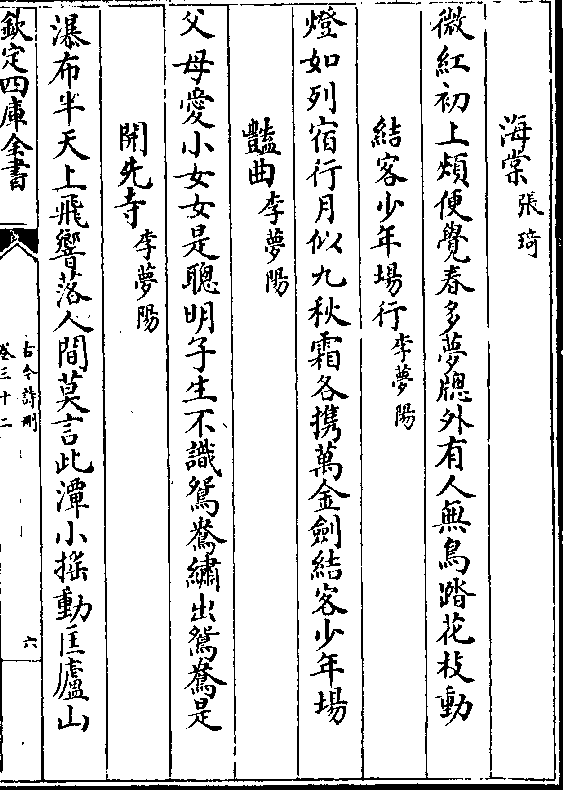 海棠張琦
微紅初上頰便覺春多夢牕外有人無鳥踏花枝動
結客少年場行李夢陽
燈如列宿行月似九秋霜各携萬金劍結客少年場
豔曲李夢陽
父母愛小女女是聰明子生不識鴛鴦繡出鴛鴦是
開先寺李夢陽
瀑布半天上飛響落人間莫言此潭小摇動匡廬山
欽定四庫全書
古今詩刪
卷三十二
六